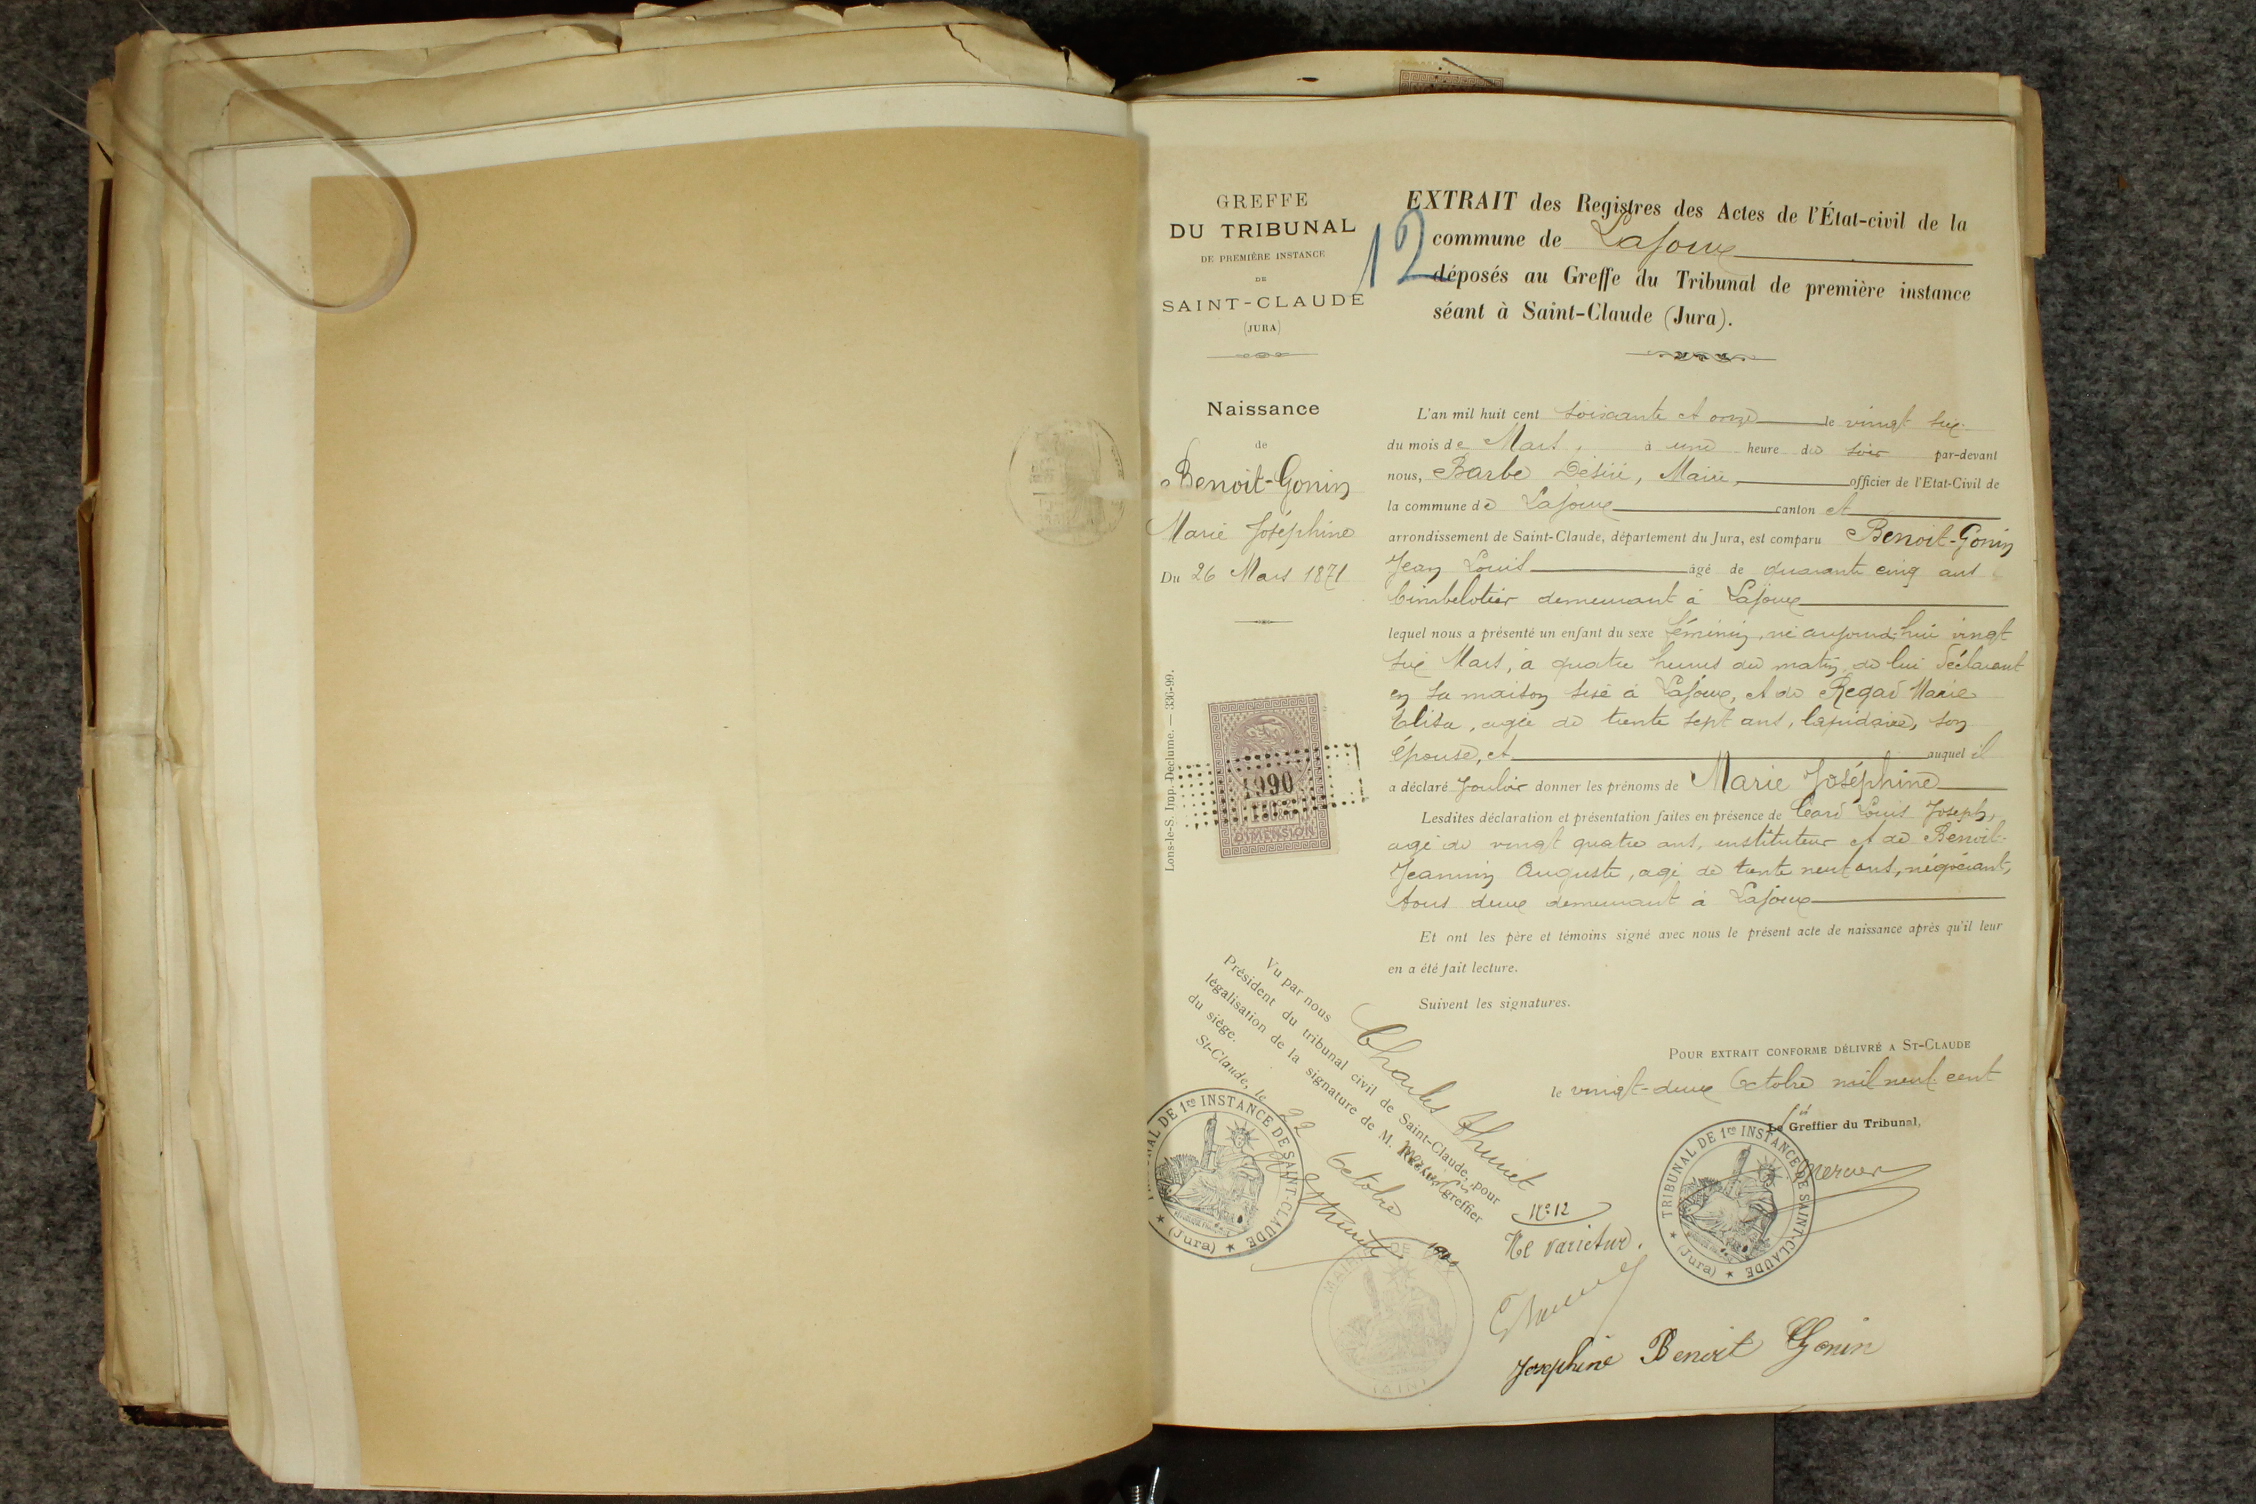 GREFFE
DU TRIBUNAL
DE PREMIÈRE INSTANCE
DE
SAINT-CLAUDE
(JURA)
Naissance
de
Benoit-Gonin
Marie Joséphine
Du 26 Mars 1871
Lons-le-S. Imp. Declume. — 336-99.
1990
DIMENSION
12
EXTRAIT des Registres des Actes de l'État-civil de la
commune de Lajoux
déposés au Greffe du Tribunal de première instance
séant à Saint-Claude (Jura).
L'an mil huit cent soixante et onze le vingt six
du mois de Mars, à une heure du soir par-devant
nous, Barbe Désiré, Maire, officier de l'Etat-Civil de
la commune de Lajoux canton et
arrondissement de Saint-Claude, département du Jura, est comparu Benoit-Gonin
Jean Louis âgé de quarante cinq ans
bimbelotier demeurant à Lajoux
lequel nous a présenté un enfant du sexe féminin, né aujourd'hui vingt
six Mars, à quatre heures du matin, de lui déclarant
en sa maison sise à Lajoux, et de Regad Marie
Elisa, agée de trente sept ans, lapidaire, son
épouse, et auquel il
a déclaré vouloir donner les prénoms de Marie Joséphine
Lesdites déclaration et présentation faites en présence de Louis Joseph,
agé de vingt quatre ans, instituteur et de Benoit-
Jeannin Auguste, agé de trente neuf ans, négociant,
tous deux demeurant à Lajoux
Et ont les père et témoins signé avec nous le présent acte de naissance après qu'il leur
en a été fait lecture.
Suivent les signatures.
POUR EXTRAIT CONFORME DÉLIVRÉ A ST-CLAUDE
le vingt-deux Octobre mil neuf cent
Le Greffier du Tribunal,
Mercier
TRIBUNAL DE 1re INSTANCE DE SAINT-CLAUDE
(Jura)
Vu par nous Charles Thuriet
Président du tribunal civil de Saint-Claude, pour
légalisation de la signature de M. Mercier greffier
du siège.
St-Claude, le 22 Octobre 1900
Thuriet
TRIBUNAL DE 1re INSTANCE DE SAINT-CLAUDE
(Jura)
MAIRIE DE
(AIN)
No 12
Ne varietur.
Josephine Benoit Gonin